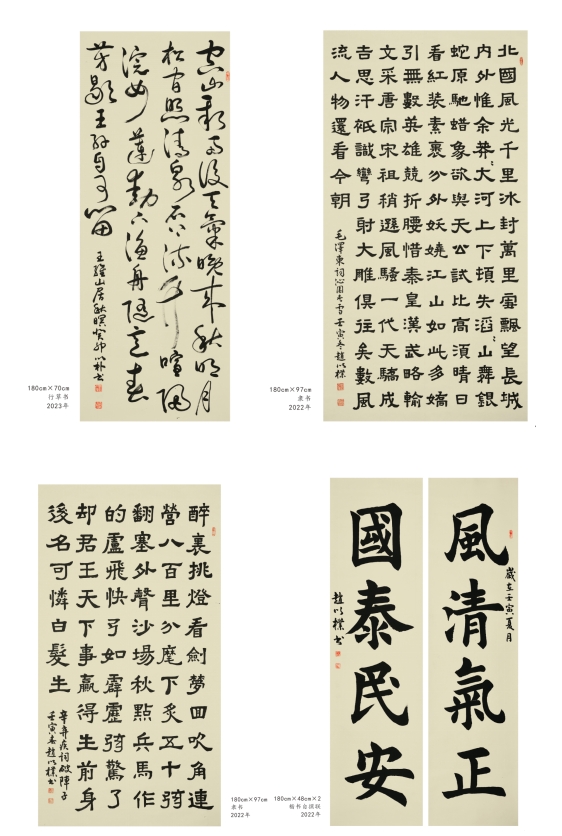 空山新雨後天氣晚来秋明月
松間照清泉石上流竹喧歸
浣女蓮動下漁舟隨意春
芳歇王孫自可留
王維山居秋暝癸卯以朴书
180cm×70cm
行草书
2023年
北國風光千里冰封萬里雪飄望長城
内外惟余莽〻大河上下頓失滔〻山舞銀
蛇原馳蜡象欲與天公試比高須晴日
看紅装素裹分外妖嬈江山如此多嬌
引無數英雄競折腰惜秦皇漢武略輸
文采唐宗宋祖稍遜風騷一代天驕成
吉思汗祇識彎弓射大雕俱往矣數風
流人物還看今朝
毛澤東詞沁園春雪壬寅冬趙以樸
180cm×97cm
隶书
2022年
醉裏挑燈看劍夢回吹角連
營八百里分麾下炙五十弦
翻塞外聲沙場秋點兵馬作
的盧飛快弓如霹靂弦驚了
却君王天下事贏得生前身
後名可憐白髮生
辛弃疾詞破陣子
壬寅春趙以樸书
180cm×97cm
隶书
2022年
風清氣正
歲在壬寅夏月
國泰民安
趙以樸书
180cm×48cm×2
楷书自撰联
2022年